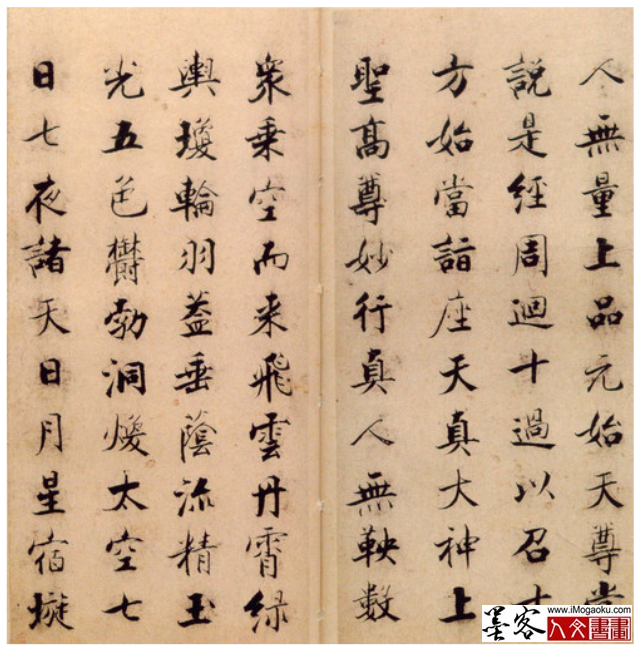 人無量上品元始天尊當
說是經周迴十過以召十
方始當詣座天真大神上
聖髙尊妙行真人無鞅數
衆乗空而来飛雲丹霄緑
輿瓊輪羽蓋垂蔭流精玉
光五色欝勃洞煥太空七
日七夜諸天日月星宿璇
墨客
www.iMogaoku.com
人文書畫